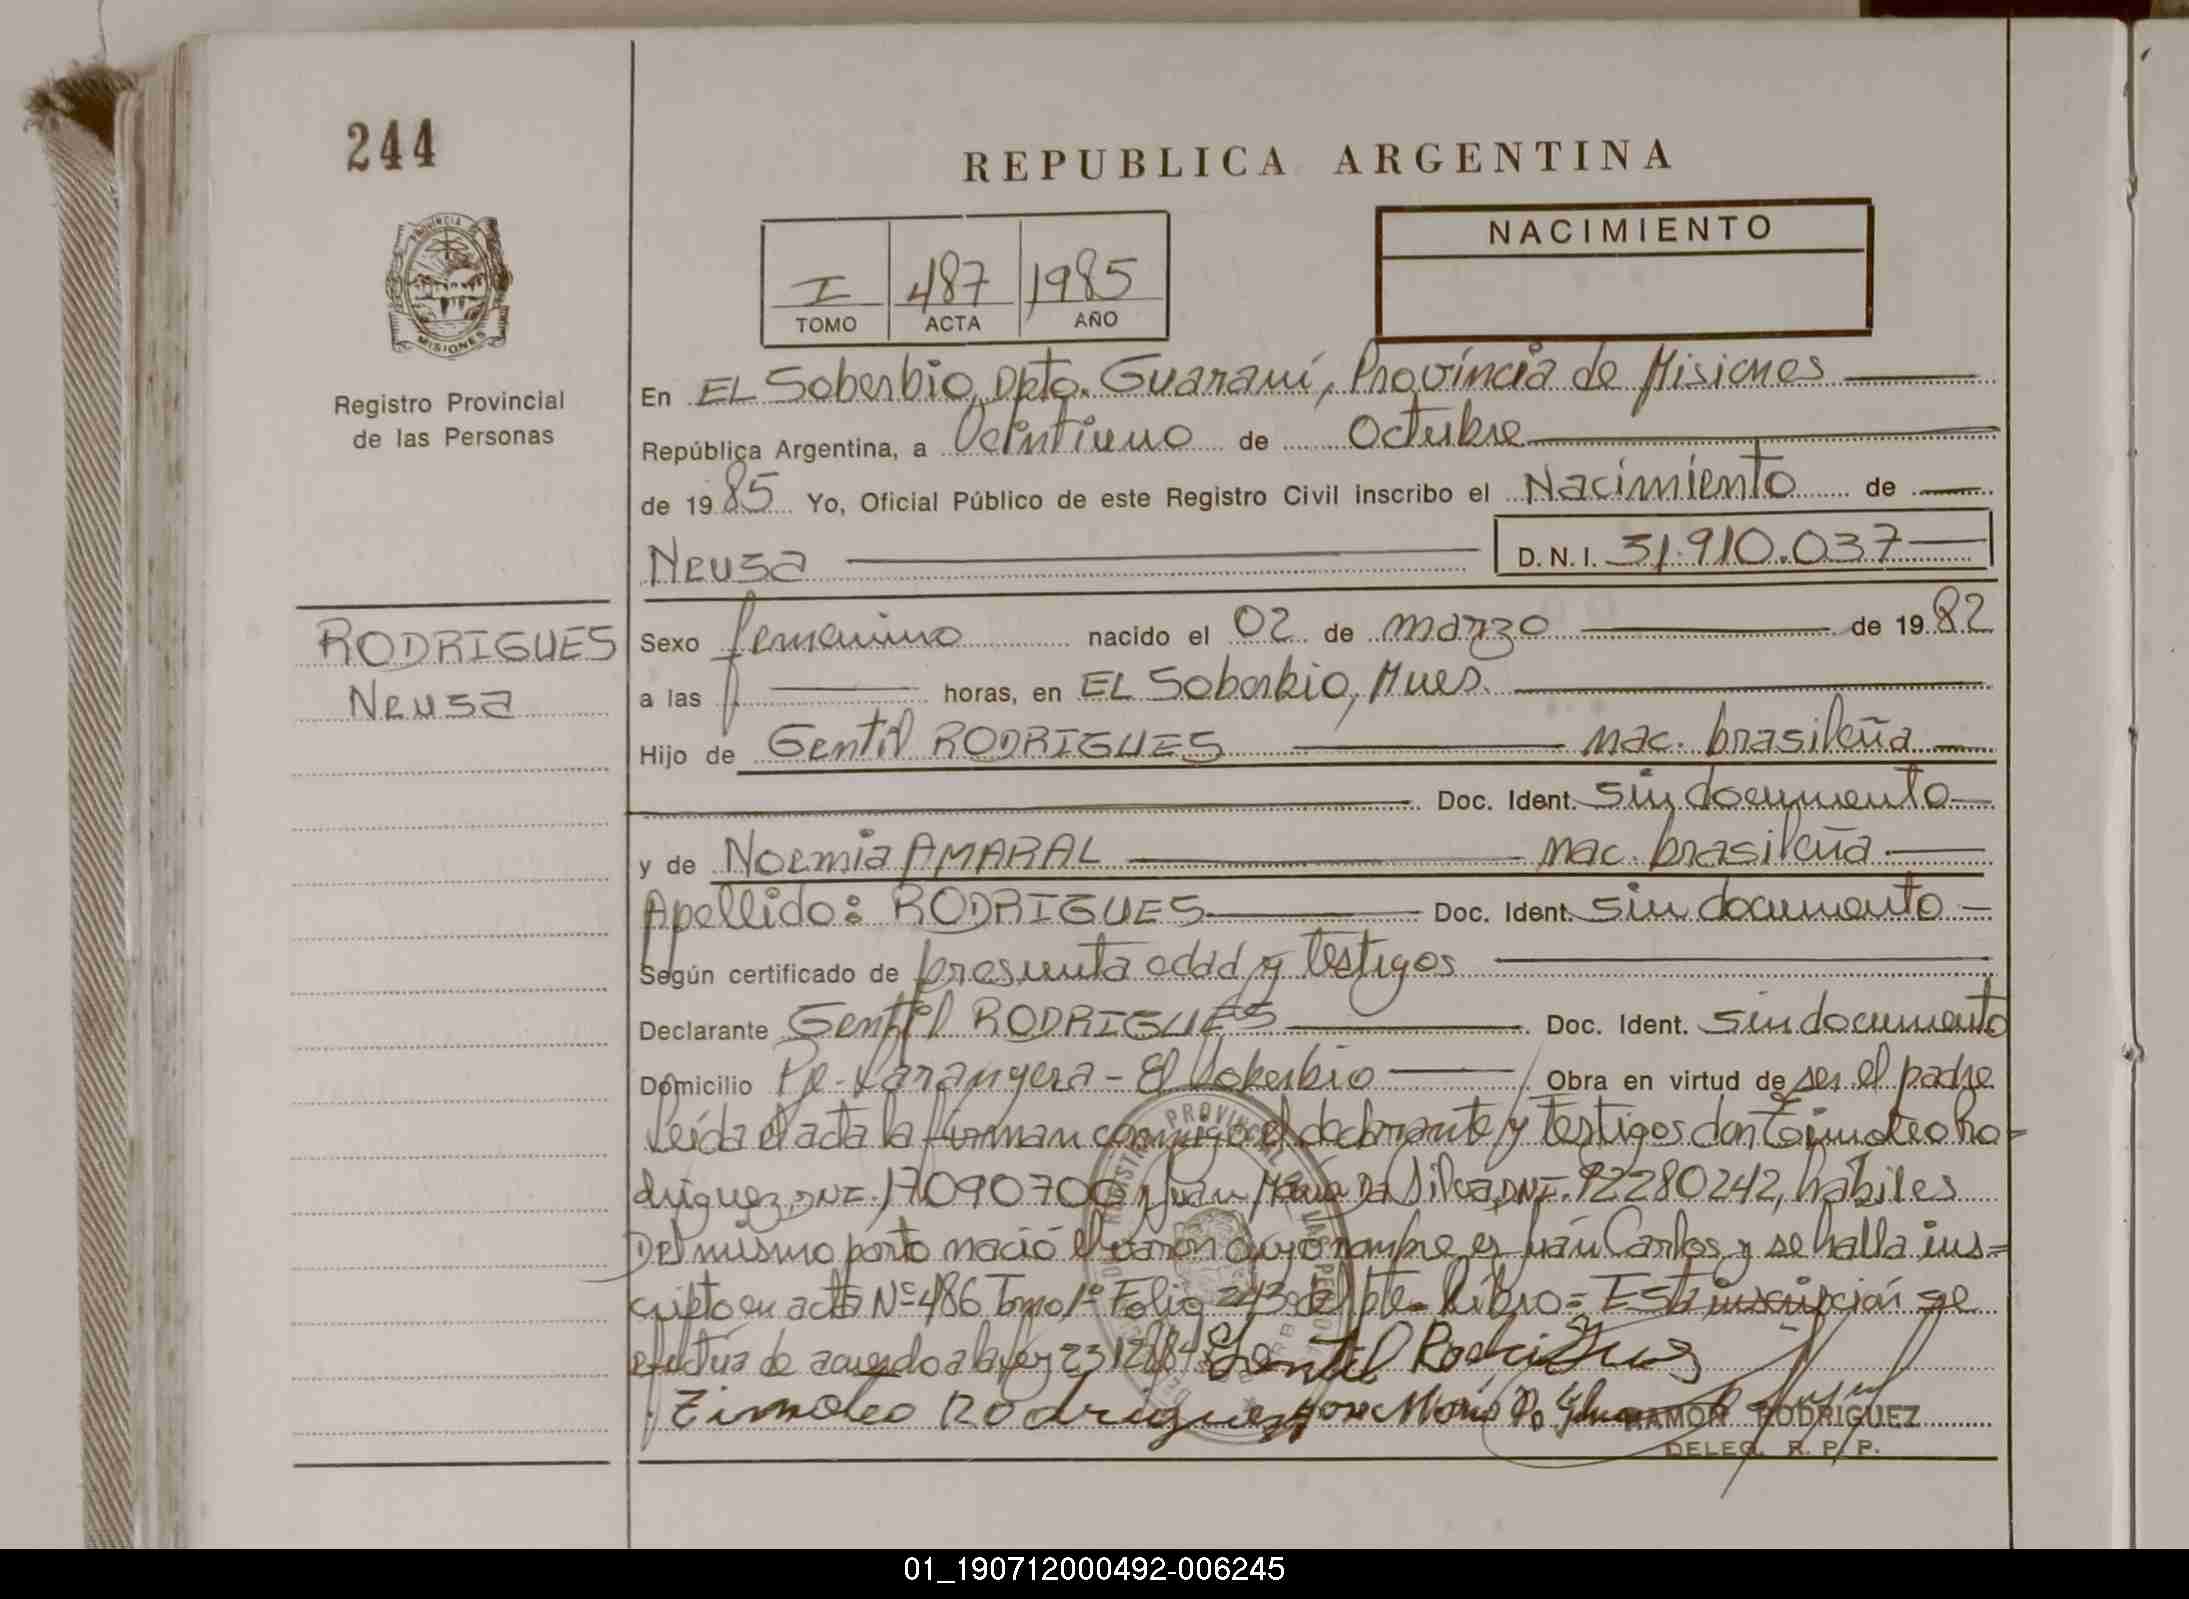 244
REPUBLICA ARGENTINA
PROVINCIA DE
MISIONES
Registro Provincial
de las Personas
I 487 1985
TOMO ACTA AÑO
NACIMIENTO
En EL Soberbio, Dpto. Guaraní, Província de Misiones
República Argentina, a Veintiuno de Octubre
de 1985 Yo, Oficial Público de este Registro Civil inscribo el Nacimiento de
Neusa D. N. I. 31.910.037
RODRIGUES
Neusa
Sexo femenino nacido el 02 de marzo de 1982
a las horas, en EL Soberbio, Mnes.
Hijo de Gentil RODRIGUES nac. brasileña
Doc. Ident. sin documento
y de Noemia AMARAL nac. brasileña
Apellido: RODRIGUES Doc. Ident. sin documento
Según certificado de presunta edad y testigos
Declarante Gentil RODRIGUES Doc. Ident. sin documento
Domicilio Pje. Laranyera - El Soberbio Obra en virtud de ser el padre
leída el acta la firman conmigo el declarante y testigos don Timoteo Ro-
driguez, DNI. 17090700 y Juan María Da Silva, DNI. 92280242, hábiles
Del mismo parto nació el varón cuyo nombre es Juán Carlos y se halla ins=
cripto en acta Nº 486 Tomo 1º Folio 243 del pte. Libro = Esta inscripción se
efectúa de acuerdo a la ley 23128/84
Gentil Rodrigues
Timoteo Rodriguez
RAMON RODRIGUEZ
DELEG. R. P. P.
01_190712000492-006245